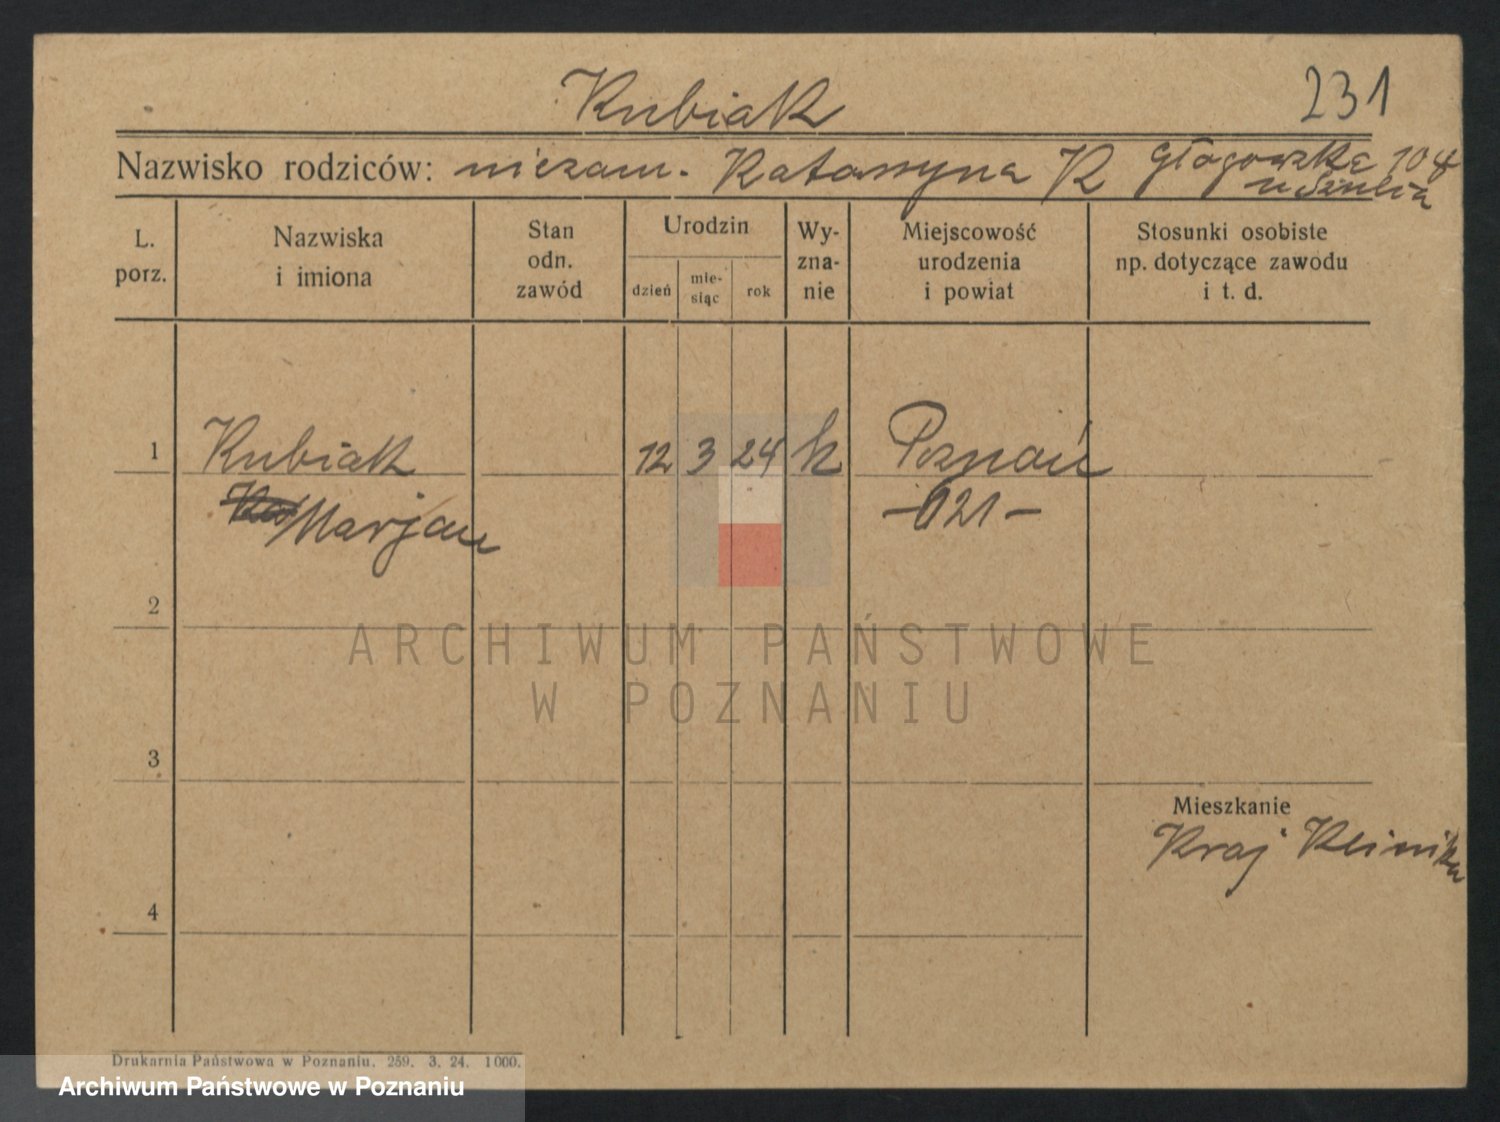 Kubiak
231
Nazwisko rodziców: niezam. Katarzyna K Głogowska 104
u Szulca
L. porz.
Nazwiska i imiona
Stan odn. zawód
Urodzin
dzień
mie-siąc
rok
Wy-zna-nie
Miejscowość urodzenia i powiat
Stosunki osobiste np. dotyczące zawodu i t. d.
1 Kubiak 12 3 24 k Poznań
Marjan -621-
2
3
Mieszkanie
Kraj Klinika
4
ARCHIWUM PAŃSTWOWE
W POZNANIU
Drukarnia Państwowa w Poznaniu. 259. 3. 24. 1000.
Archiwum Państwowe w Poznaniu